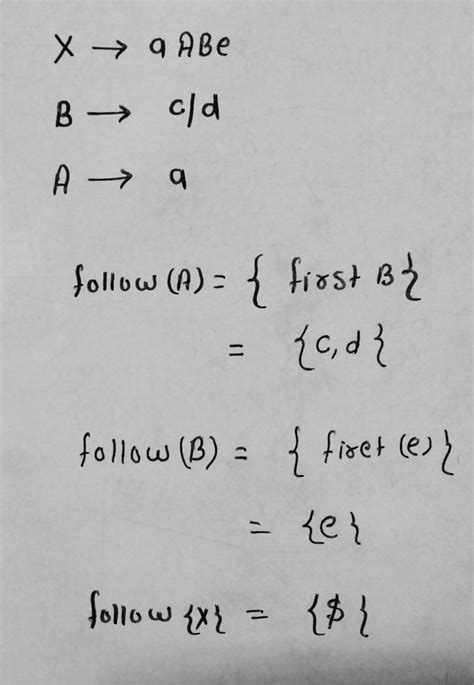 X → aABe
B → c/d
A → a
follow (A) = { first B }
= {c, d }
follow (B) = { first (e) }
= {e }
follow {X} = {$ }